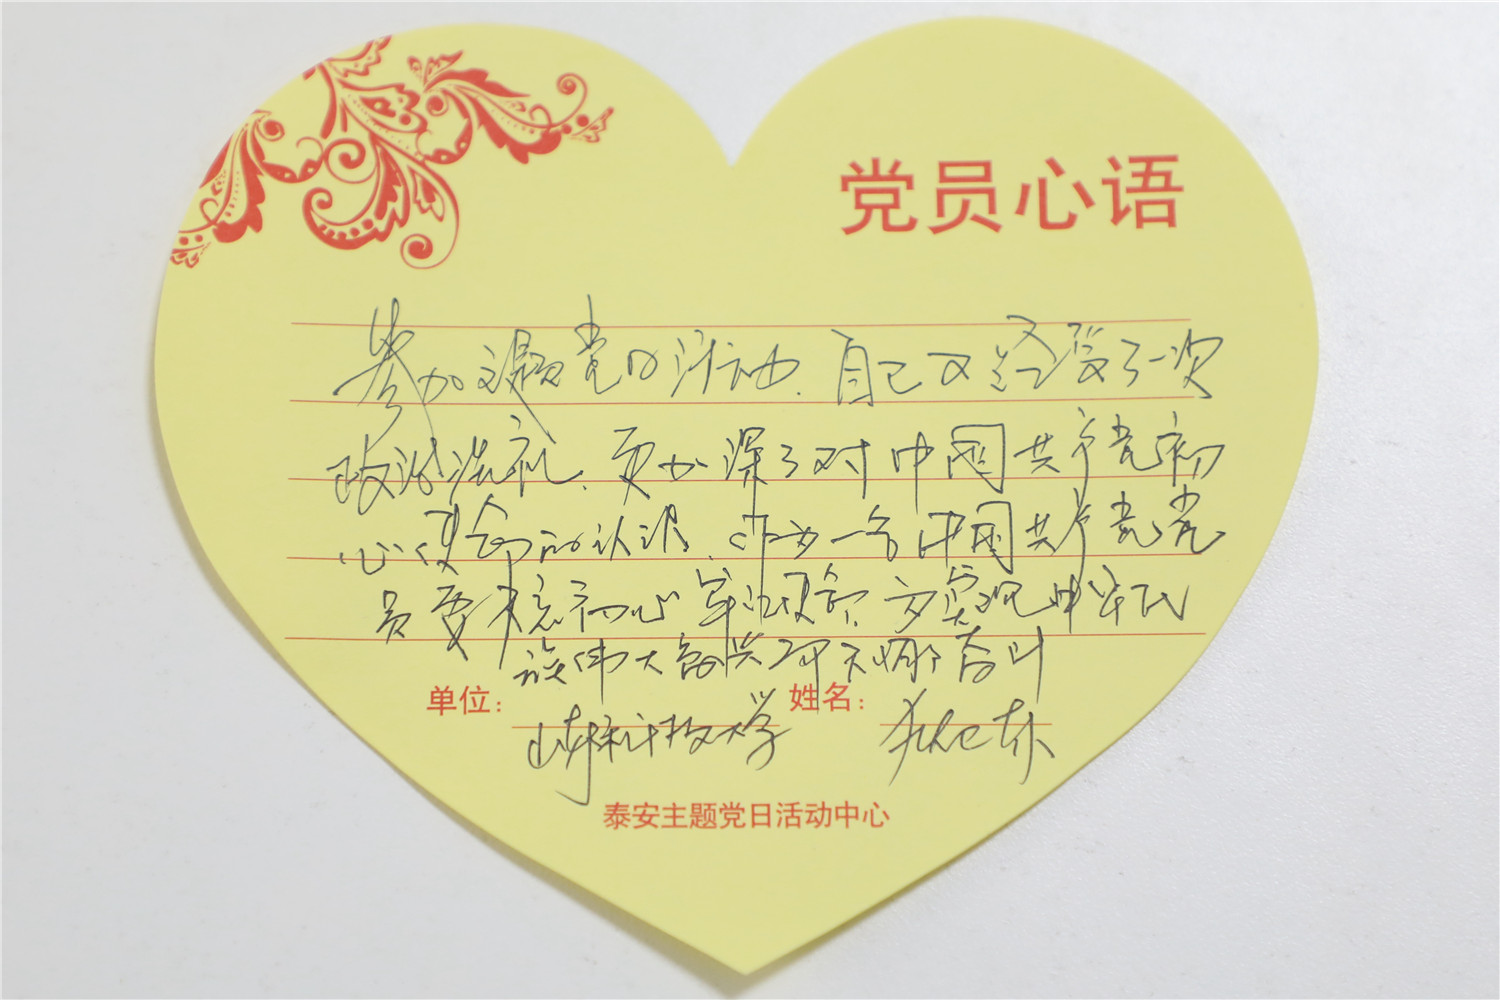 党员心语
参加主题党日活动,自己又经受了一次
政治洗礼,更加深了对中国共产党初
心使命的认识,作为一名中国共产党党
员要不忘初心牢记使命,为实现中华民
族伟大复兴而不懈奋斗
单位: 山东科技大学 姓名:
泰安主题党日活动中心